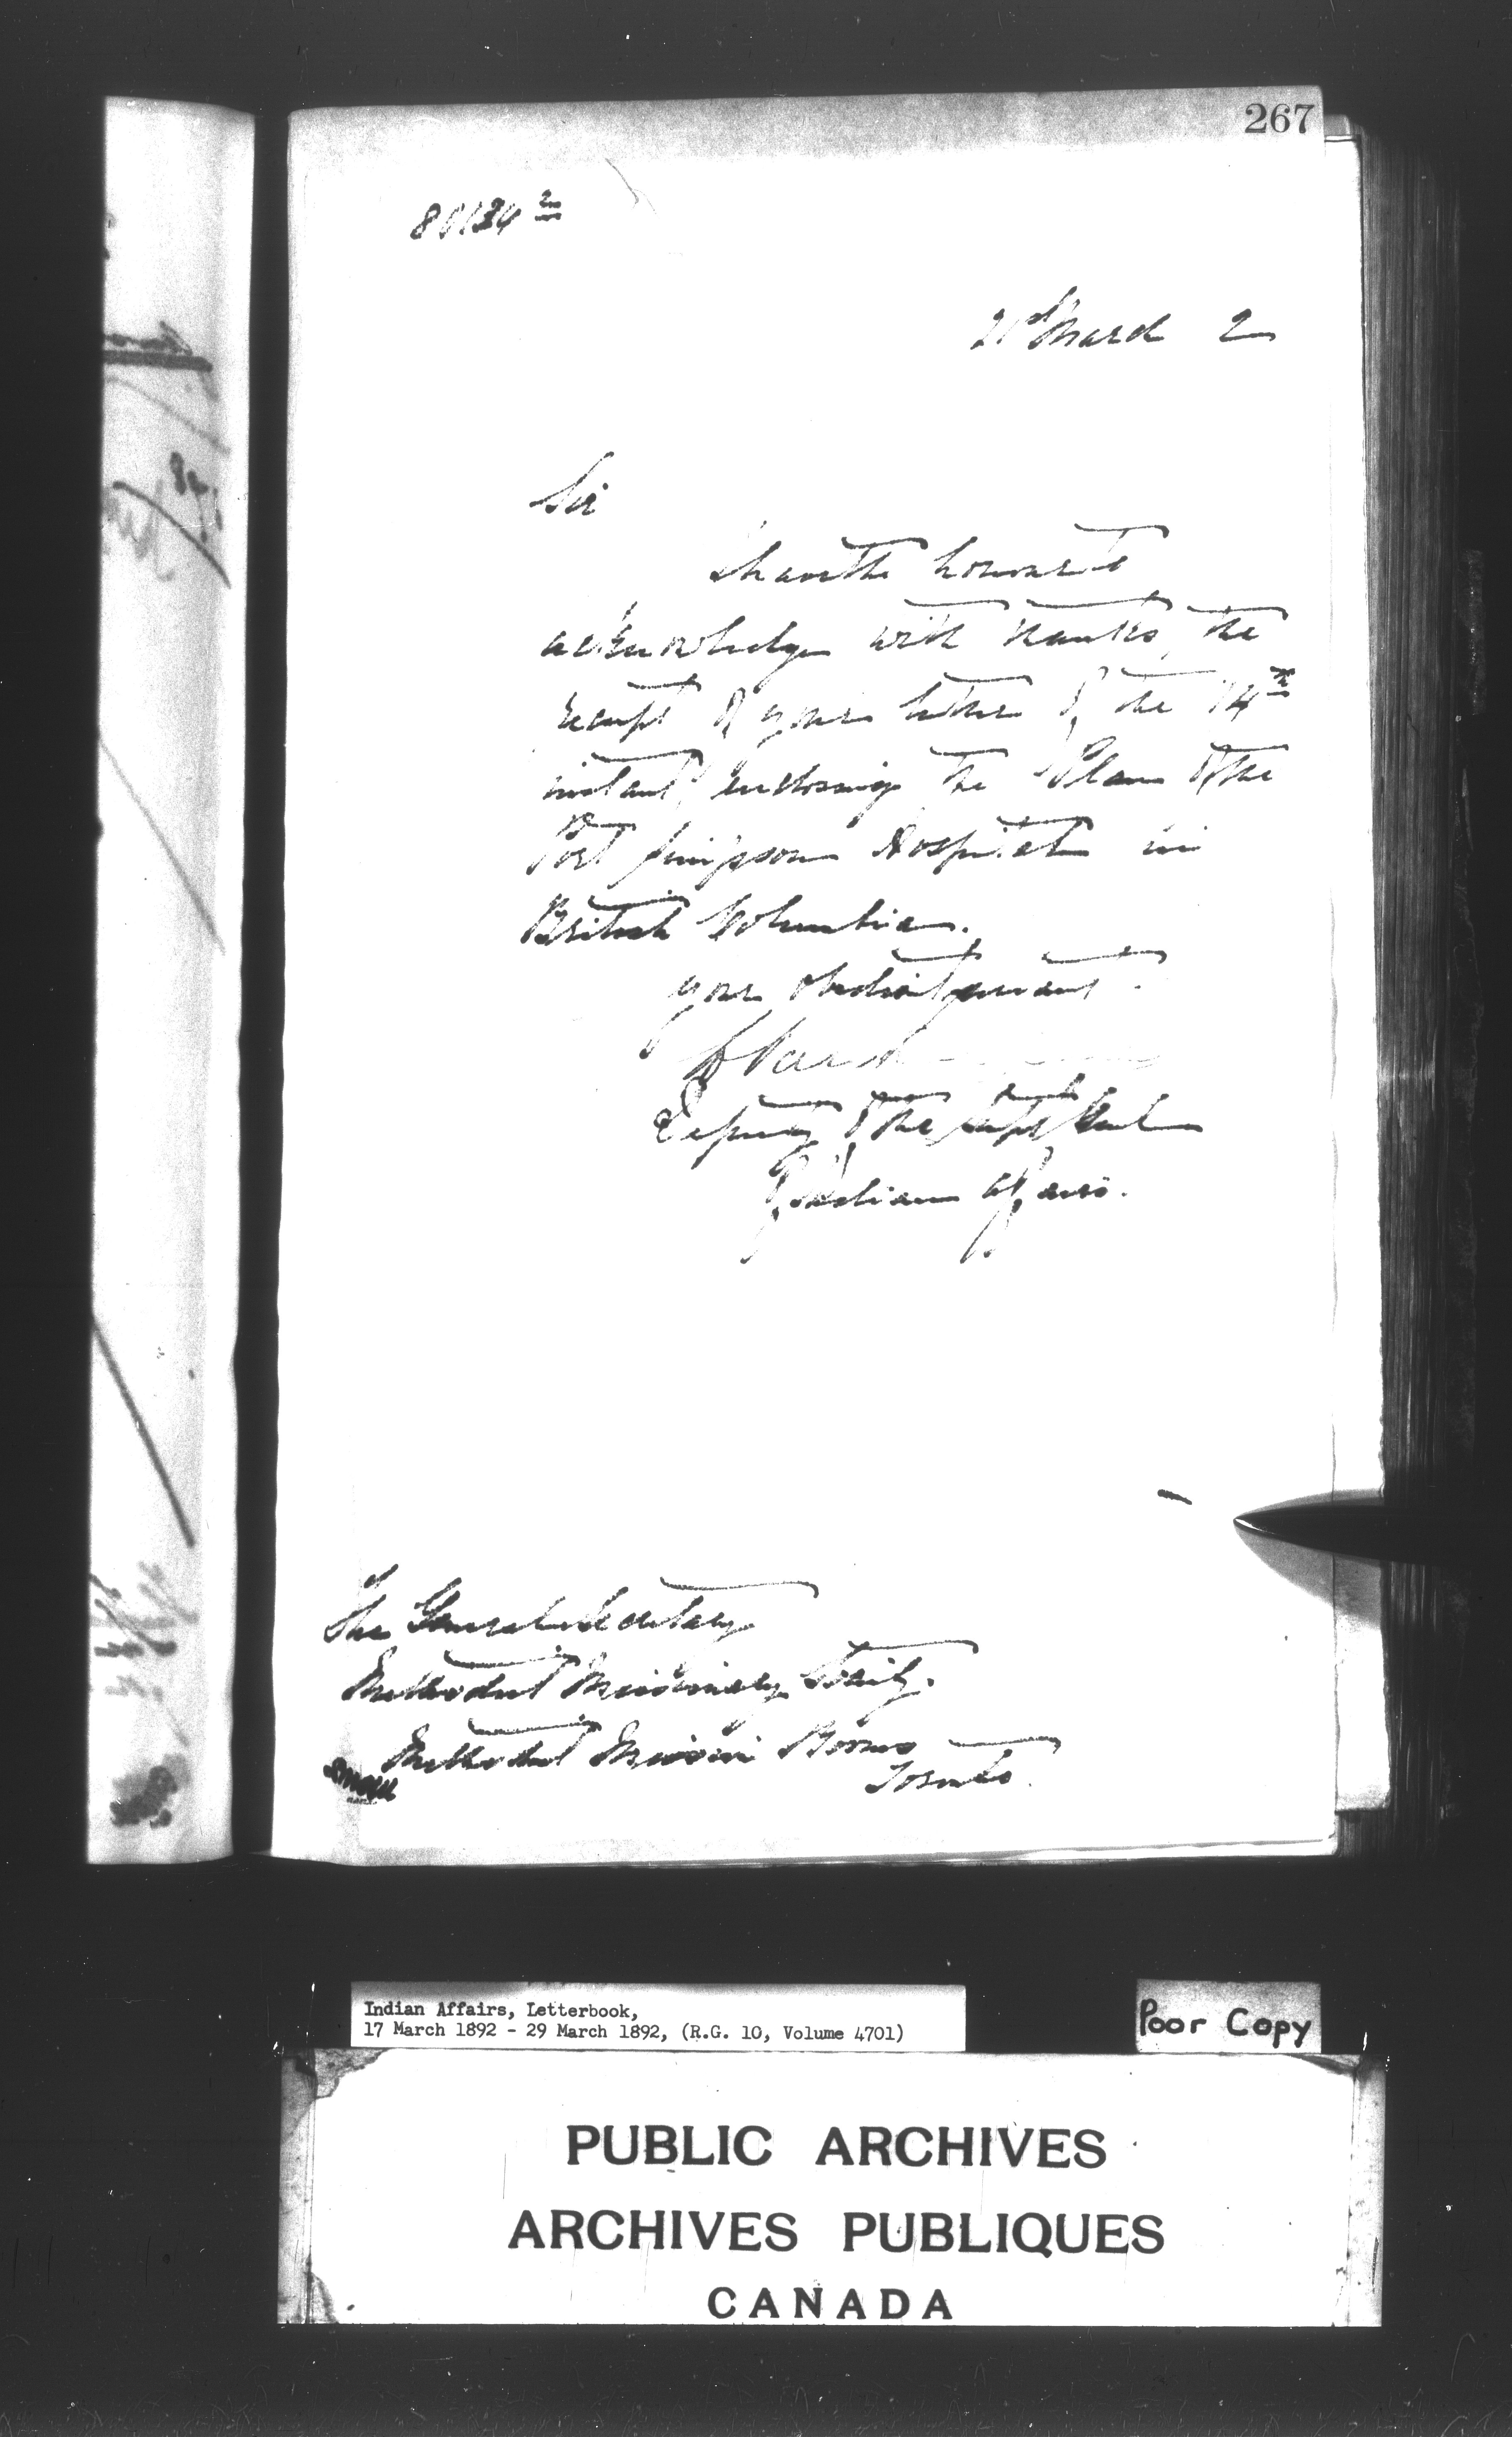 267
21st March 2
Sir
I have the honour to
acknowledge with thanks, the
receipt of your letter of the 14th
instant, enclosing the Plan of the
Port Simpson Hospital in
British Columbia.
Your obedient servant.
Deputy of the Supt Genl
of Indian Affairs.
The General Secretary
Methodist Missionary Society.
Methodist Mission Rooms
Toronto.
Indian Affairs, Letterbook,
17 March 1892 - 29 March 1892, (R.G. 10, Volume 4701)
Poor Copy
PUBLIC ARCHIVES
ARCHIVES PUBLIQUES
CANADA